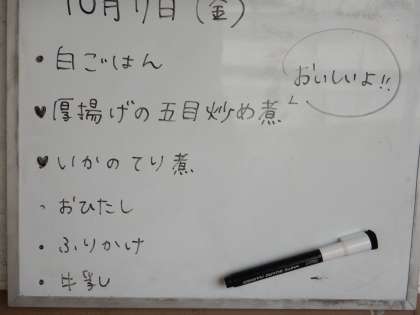 10月17日(金)
・白ごはん
おいしいよ!!
♥厚揚げの五目炒め煮
♥いかのてり煮
・おひたし
・ふりかけ
・牛乳